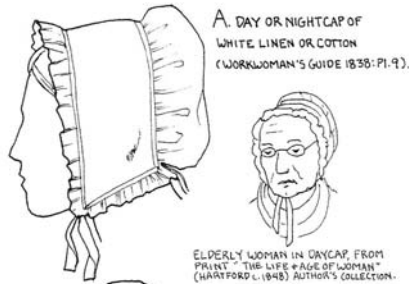 A. DAY OR NIGHTCAP OF
WHITE LINEN OR COTTON
(WORKWOMAN'S GUIDE 1838: Pl. 9).
ELDERLY WOMAN IN DAYCAP, FROM
PRINT "THE LIFE + AGE OF WOMAN"
(HARTFORD c. 1848) AUTHOR'S COLLECTION.